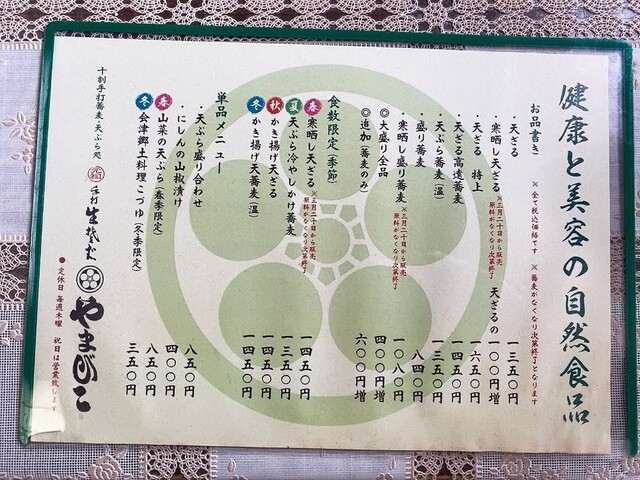 健康と美容の自然食品
お品書き
※全て税込価格です ※蕎麦がなくなり次第終了となります
・天ざる 一三五〇円
・寒晒し天ざる ※三月二十日から販売 原料がなくなり次第終了 天ざるの一〇〇円増
・天ざる 特上 一六五〇円
・天ざる 高遠蕎麦 一四五〇円
・天ぷら蕎麦(温) 一三五〇円
・盛り蕎麦 八四〇円
・寒晒し盛り蕎麦 ※三月二十日から販売 原料がなくなり次第終了 一〇八〇円
◎大盛り全品 四〇〇円増
◎追加(蕎麦のみ) 六〇〇円増
食数限定(季節)
春 寒晒し天ざる ※三月二十日から販売 原料がなくなり次第終了 一四五〇円
夏 天ぷら冷やしかけ蕎麦 一三五〇円
秋 かき揚げ天ざる 一四五〇円
冬 かき揚げ天蕎麦(温) 一四五〇円
単品メニュー
・天ぷら盛り合わせ 八五〇円
・にしんの山椒漬け 四〇〇円
春 山菜の天ぷら(春季限定) 八五〇円
冬 会津郷土料理こづゆ(冬季限定) 三五〇円
十割手打蕎麦・天ぷら処
手打
生そば
やまびこ
●定休日 毎週木曜 祝日は営業致します